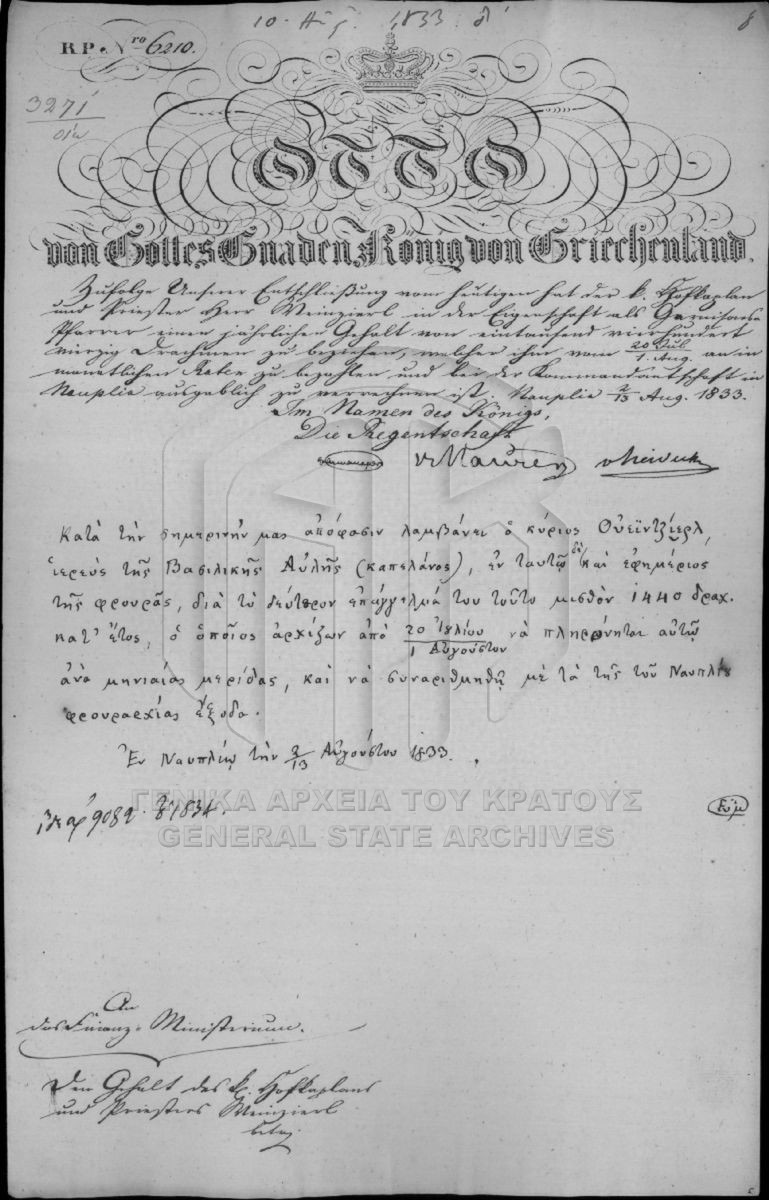 10 Αὐγ. 1833. δ'
8
R.P. Nro 6210.
3271
οἰκ
OTTO
von Gottes Gnaden König von Griechenland.
Zufolge Unserer Entschließung vom heutigen hat der k. Hofkaplan
und Priester Herr Weinzierl in der Eigenschaft als Garnisons-
Pfarrer einen jährlichen Gehalt von eintausend vierhundert
vierzig Drachmen zu beziehen, welcher ihm vom 20 Jul / 1. Aug. an in
monatlichen Raten zu bezahlen und bei der Kommandantschaft in
Nauplia ausgablich zu verrechnen ist. Nauplia 2/13 Aug. 1833.
Im Namen des Königs,
Die Regentschaft
v Maurer v Heideck
Κατὰ τὴν σημερινήν μας ἀπόφασιν λαμβάνει ὁ κύριος Οὐεϊντζιερλ,
ἱερεὺς τῆς Βασιλικῆς Αὐλῆς (καπελάνος), ἐν ταυτῷ δὲ καὶ ἐφημέριος
τῆς φρουρᾶς, διὰ τὸ δεύτερον ἐπάγγελμά του τοῦτο μισθὸν 1440 δραχ.
κατ' ἔτος, ὁ ὁποῖος ἀρχίζων ἀπὸ 20 Ἰουλίου / 1 Αὐγούστου νὰ πληρόνηται αὐτῷ
ἀνὰ μηνιαίας μερίδας, καὶ νὰ συναριθμηθῇ μὲ τὰ τῆς τοῦ Ναυπλίου
φρουραρχίας ἔξοδα.
Ἐν Ναυπλίῳ τὴν 2/13 Αὐγούστου 1833.
9082 1834.
ΓΕΝΙΚΑ ΑΡΧΕΙΑ ΤΟΥ ΚΡΑΤΟΥΣ
GENERAL STATE ARCHIVES
An
das Finanz-Ministerium.
Den Gehalt des k. Hofkaplans
und Priesters Weinzierl
betrf.